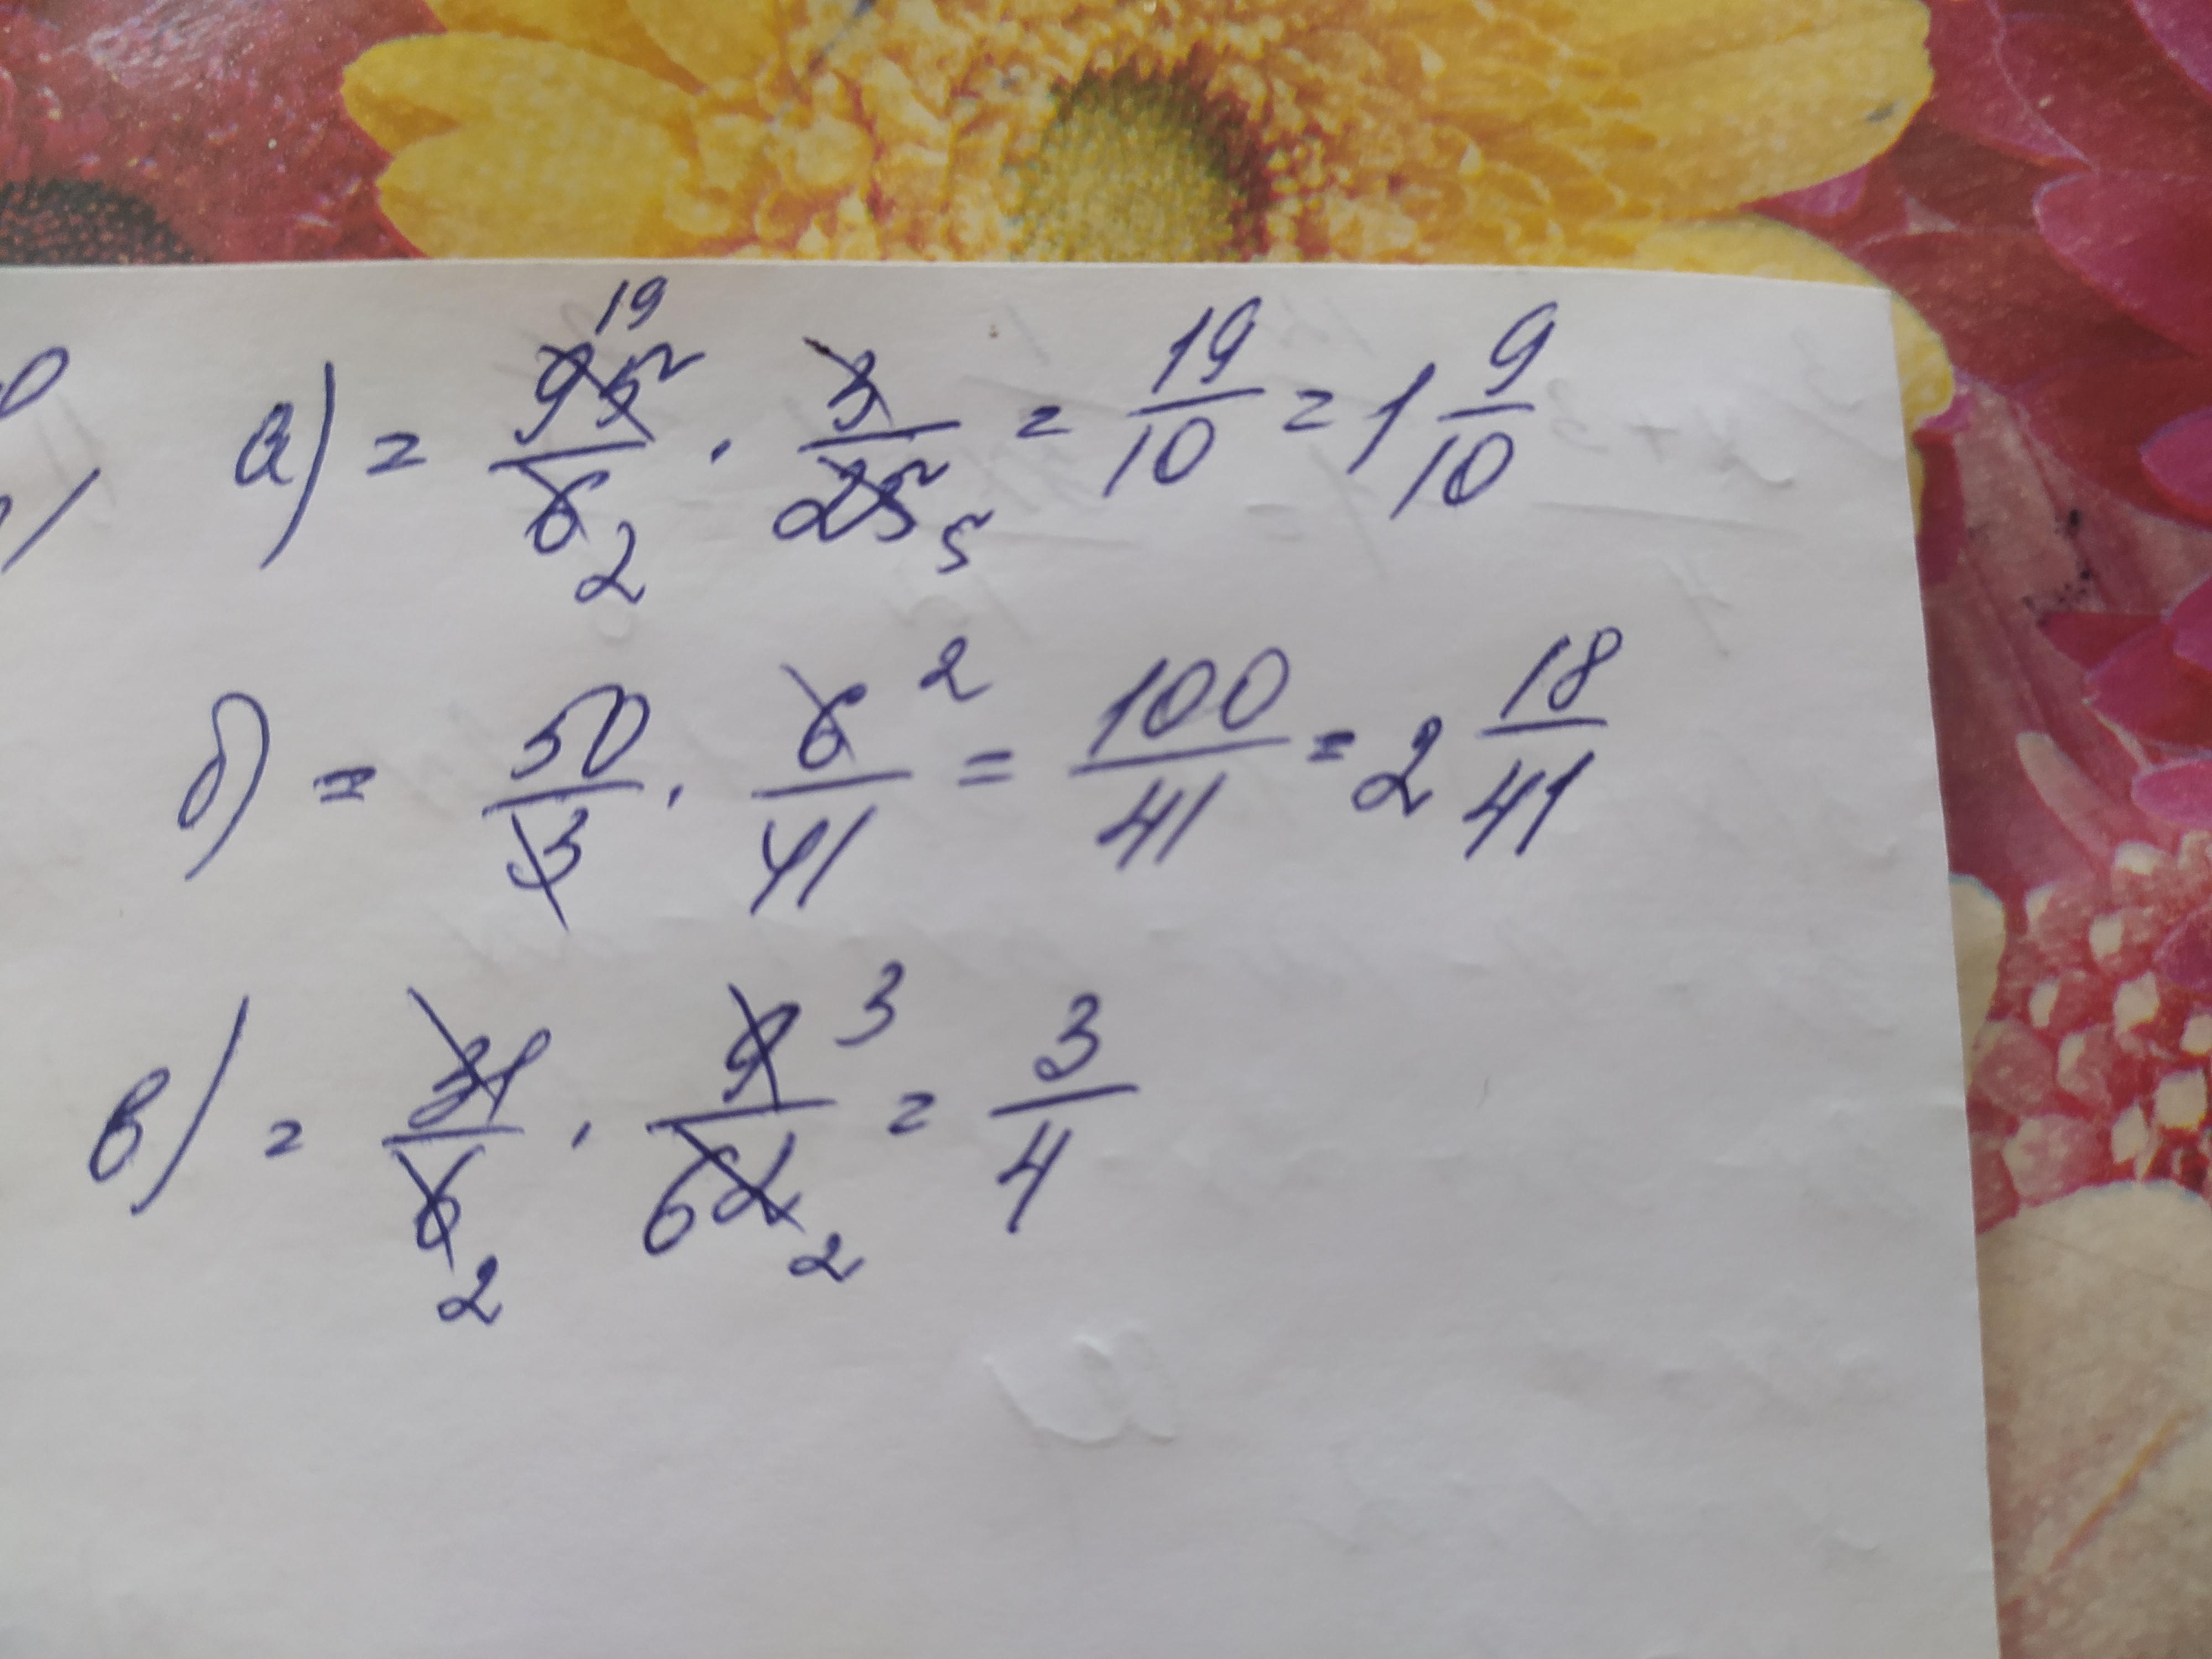 а) = 95/6 · 3/25 = 19/10 = 1 9/10
19 2 5
б) = 50/3 · 6/41 = 100/41 = 2 18/41
2
в) = 31/6 · 9/62 = 3/4
3 2 2